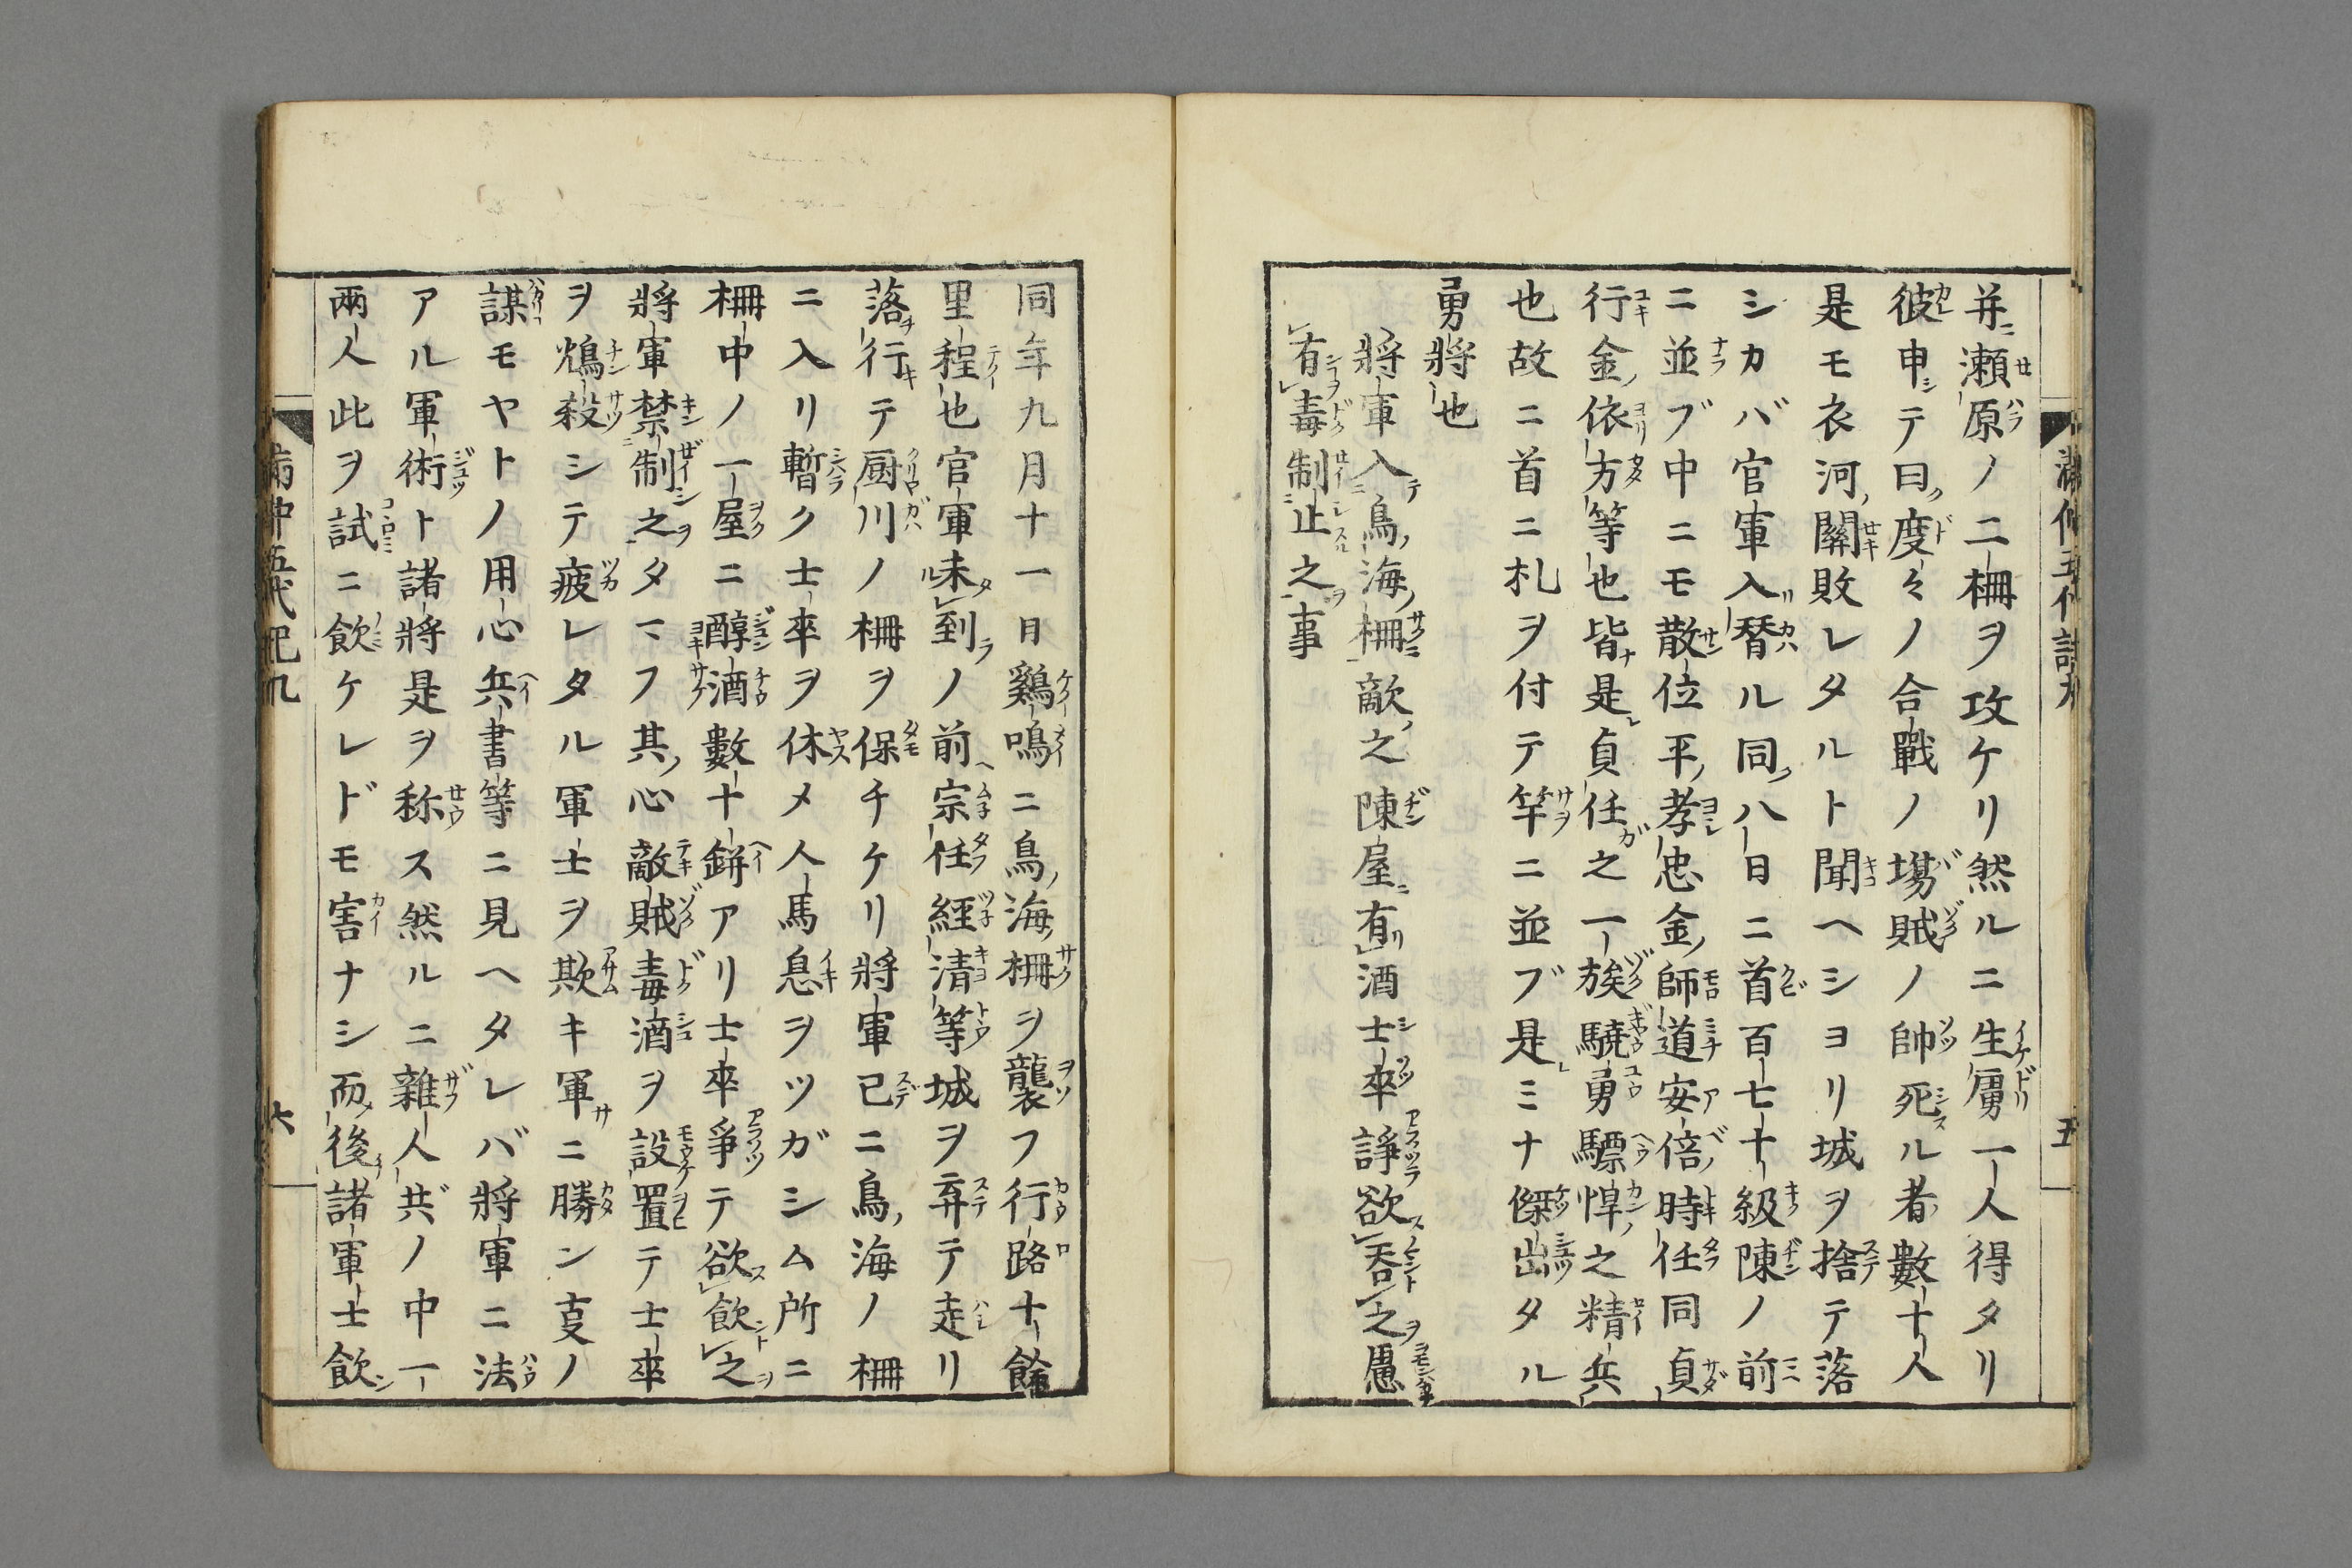 并ニ瀬原ノ二柵ヲ攻ケリ然ルニ生虜一人得タリ
彼申テ曰度々ノ合戰ノ塲賊ノ帥死ル者數十人
是モ衣河關敗レタルト聞ヘショリ城ヲ捨テ落
シカバ官軍入替ル同八日ニ首百七十級陳ノ前
ニ並ブ中ニモ散位平孝忠金師道安倍時任同貞
行金依方等也皆是貞任之一族驍勇驃悍之精兵
也故ニ首ニ札ヲ付テ竿ニ並ブ是ミナ傑出タル
勇將也
將軍入鳥海柵敵之陳屋有酒士卒諍欲呑之愚
有毒制止之事
同年九月十一日鷄鳴ニ鳥海柵ヲ襲フ行路十餘
里程也官軍未到ノ前宗任經清等城ヲ弃テ走リ
落行テ厨川ノ柵ヲ保チケリ將軍已ニ鳥海ノ柵
ニ入リ暫ク士卒ヲ休メ人馬息ヲツガシム所ニ
柵中ノ一屋ニ醇酒數十缾アリ士卒爭テ欲飲之
將軍禁制之タマフ其心敵賊毒酒ヲ設置テ士卒
ヲ鴆殺シテ疲レタル軍士ヲ欺キ軍ニ勝ン叓ノ
謀モヤトノ用心兵書等ニ見ヘタレバ將軍ニ法
アル軍術ト諸將是ヲ称ス然ルニ雜人共ノ中一
兩人此ヲ試ニ飲ケレドモ害ナシ而後諸軍士飲
滿仲五代記九
六